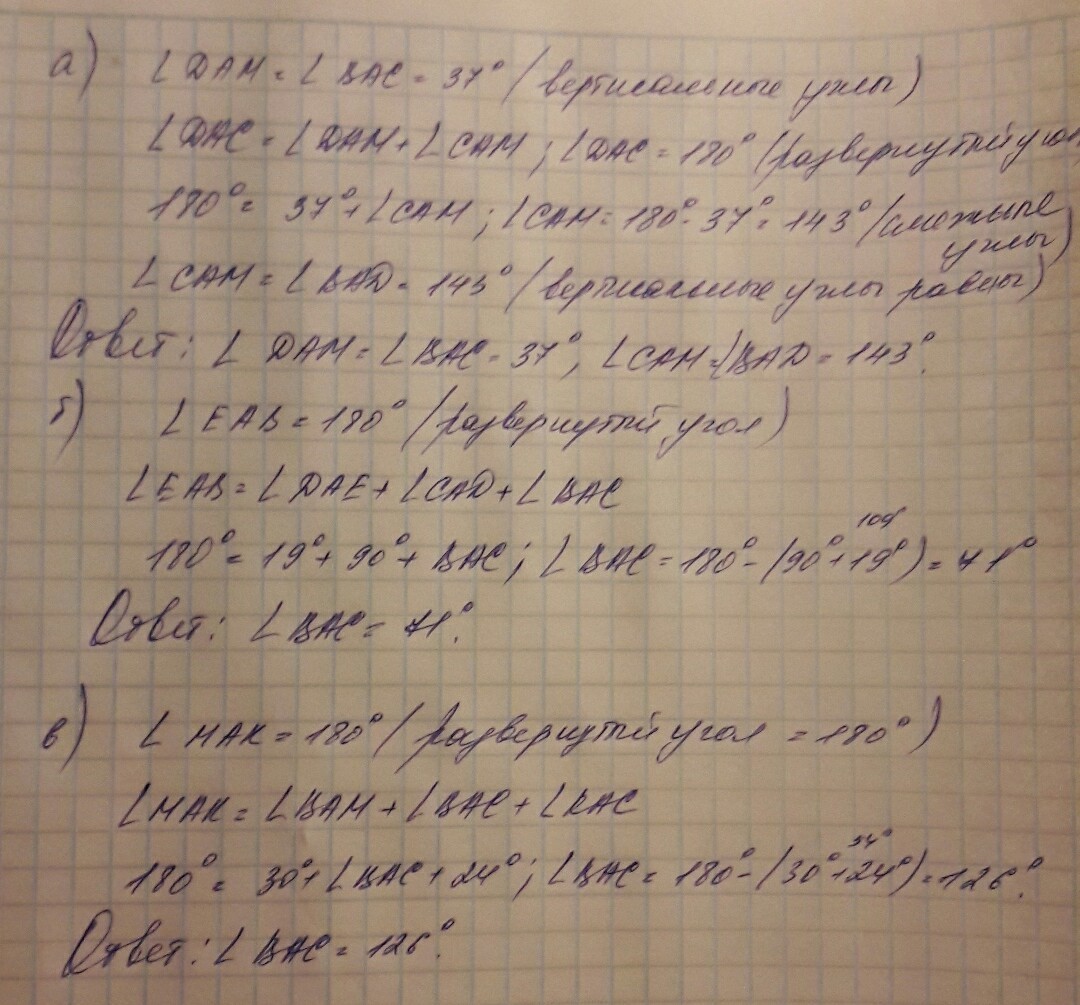 а) ∠DAM = ∠BAC = 37° (вертикальные углы)
∠DAC = ∠DAM + ∠CAM ; ∠DAC = 180° (развернутый угол)
180° = 37° + ∠CAM ; ∠CAM = 180° - 37° = 143° (смежные
углы)
∠CAM = ∠BAD = 143° (вертикальные углы равны)
Ответ: ∠DAM = ∠BAC = 37°, ∠CAM = ∠BAD = 143°.
б) ∠EAB = 180° (развернутый угол)
∠EAB = ∠DAE + ∠CAD + ∠BAC
109°
180° = 19° + 90° + BAC ; ∠BAC = 180° - (90° + 19°) = 71°
Ответ: ∠BAC = 71°.
в) ∠MAK = 180° (развернутый угол = 180°)
∠MAK = ∠BAM + ∠BAC + ∠KAC
54°
180° = 30° + ∠BAC + 24° ; ∠BAC = 180° - (30° + 24°) = 126°.
Ответ: ∠BAC = 126°.